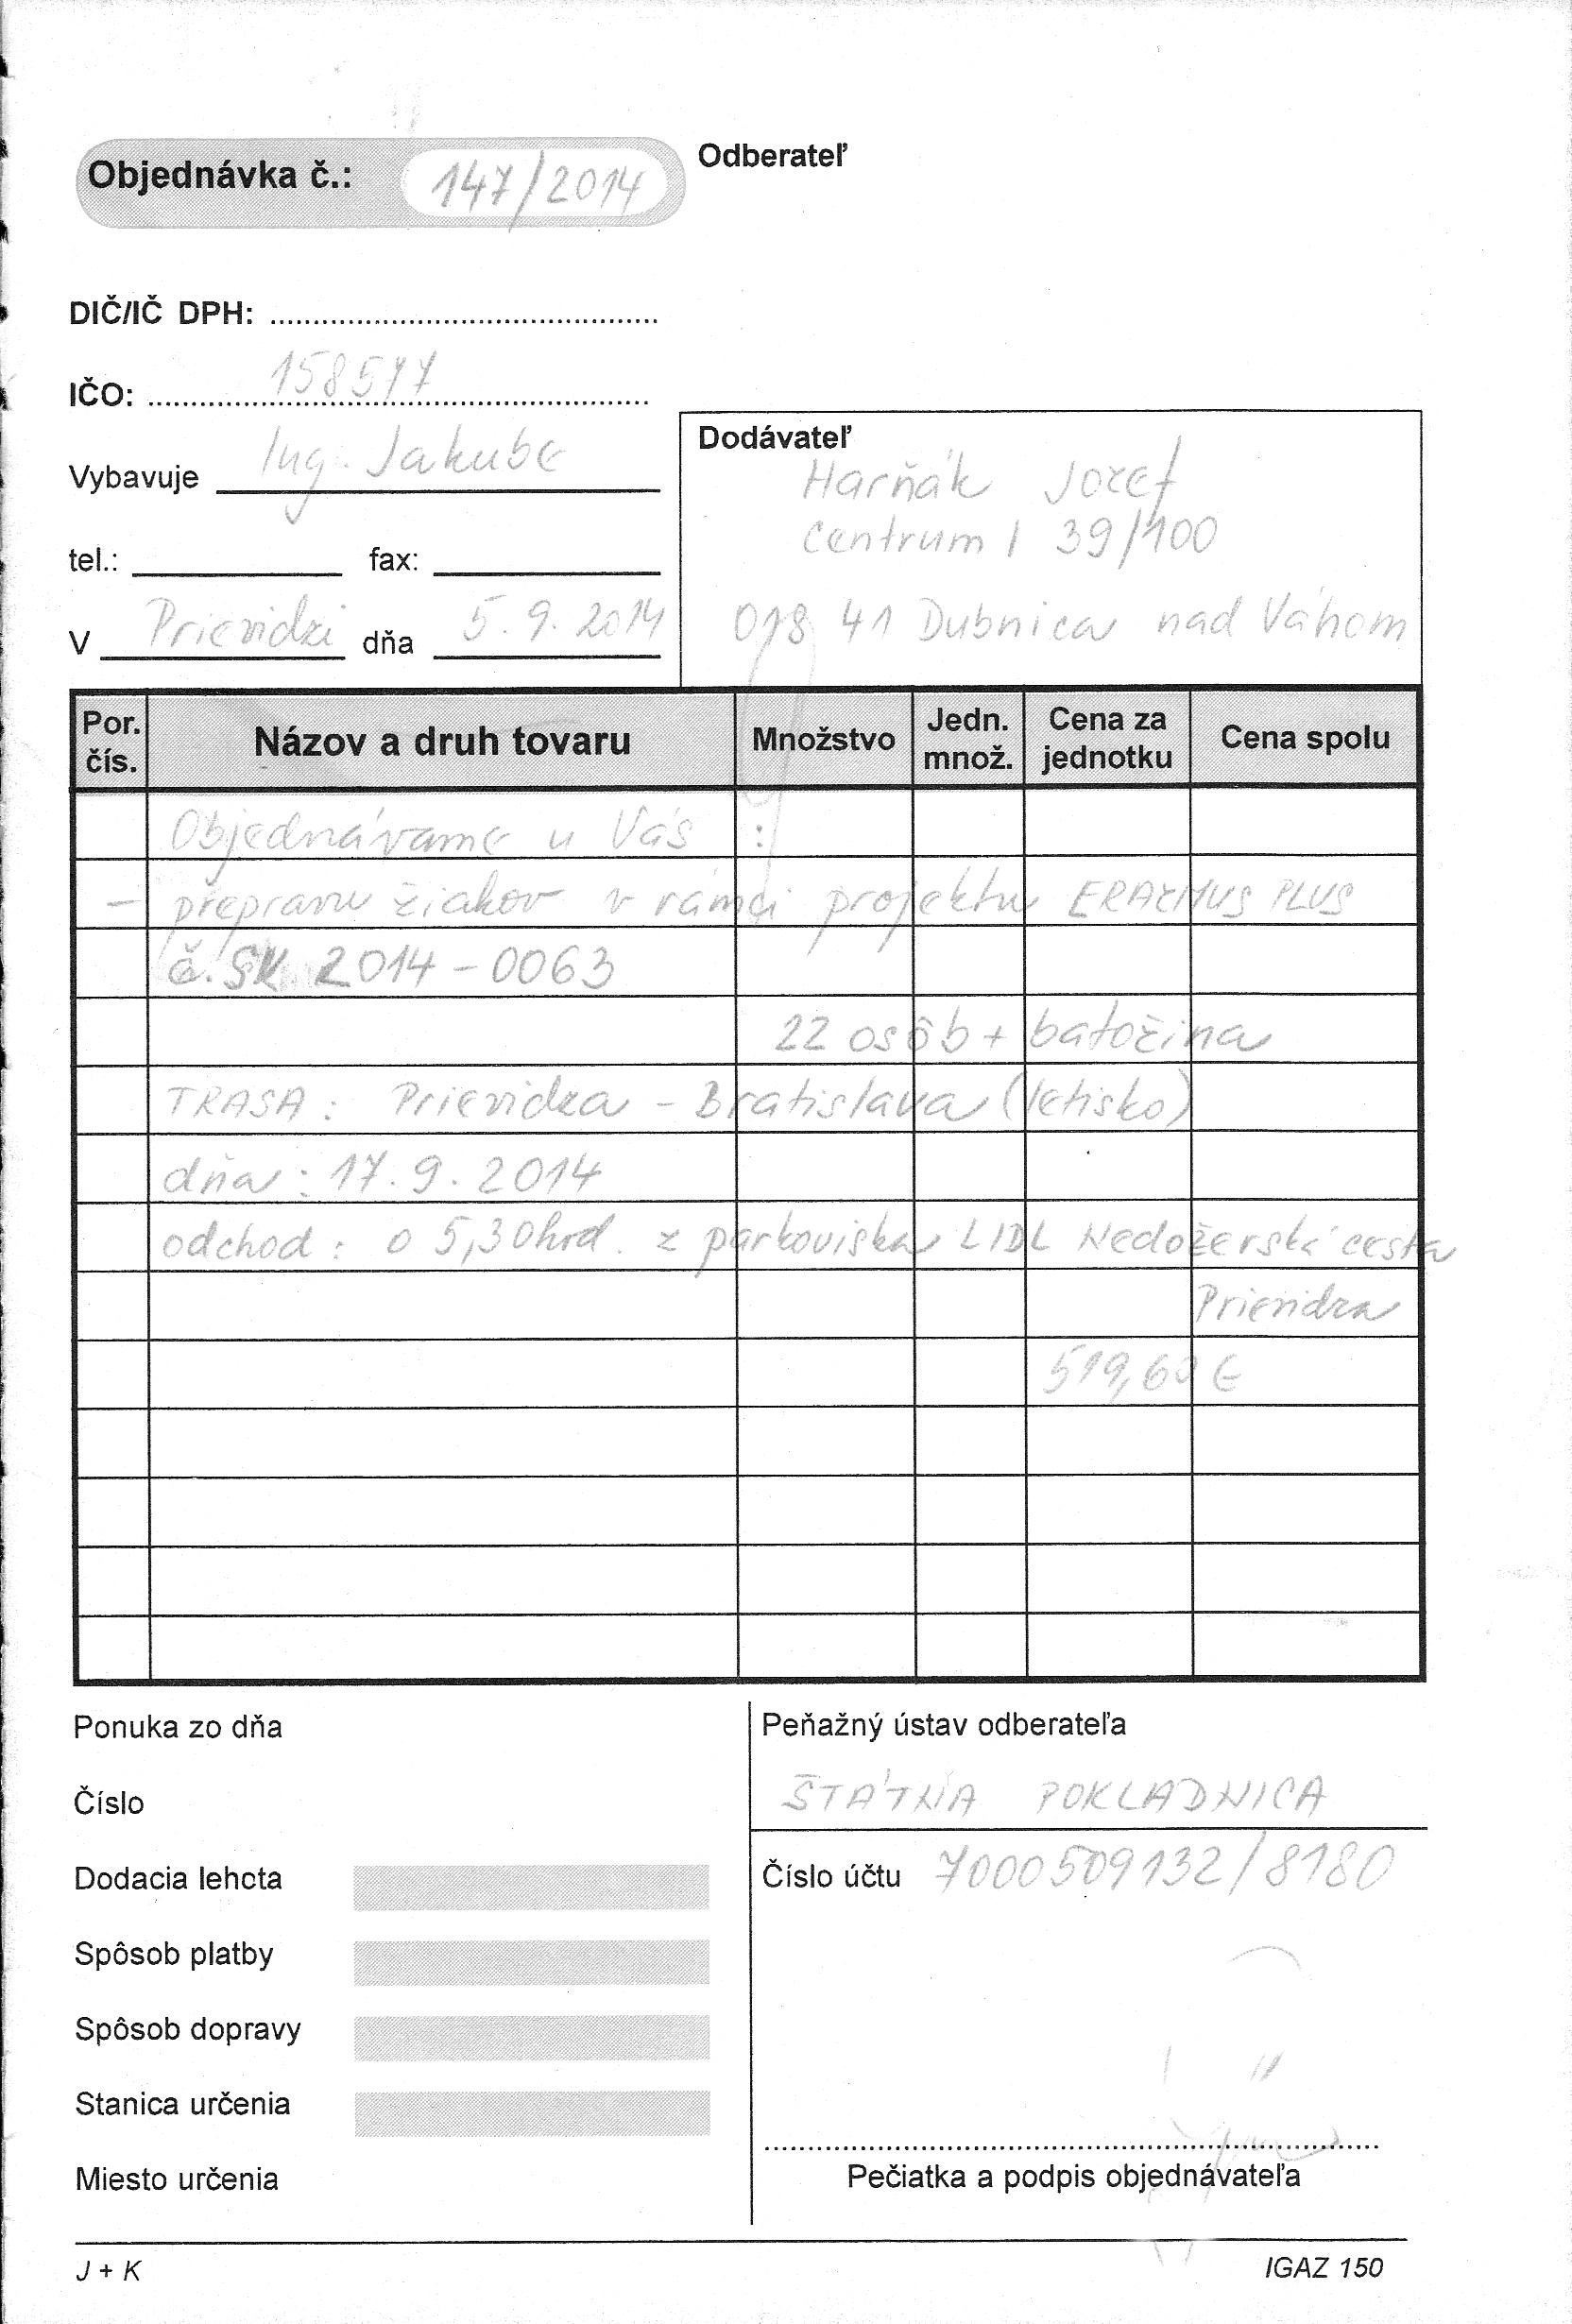 Objednávka č.: 147/2014
Odberateľ
DIČ/IČ DPH:
IČO: 158577
Vybavuje Ing. Jakube
tel.: fax:
V Prievidzi dňa 5.9.2014
Dodávateľ
Harňák Jozef
Centrum I 39/100
018 41 Dubnica nad Váhom
Por. čís. Názov a druh tovaru Množstvo Jedn. množ. Cena za jednotku Cena spolu
Objednávame u Vás :
- prepravu žiakov v rámci projektu ERAZMUS PLUS
č. SK 2014-0063
22 osôb + batožina
TRASA: Prievidza - Bratislava (letisko)
dňa: 17.9.2014
odchod: o 5,30hod. z parkoviska LIDL Nedožerská cesta
Prievidza
519,60 €
Ponuka zo dňa
Číslo
Dodacia lehota
Spôsob platby
Spôsob dopravy
Stanica určenia
Miesto určenia
Peňažný ústav odberateľa
ŠTÁTNA POKLADNICA
Číslo účtu 7000509132/8180
Pečiatka a podpis objednávateľa
J + K
IGAZ 150